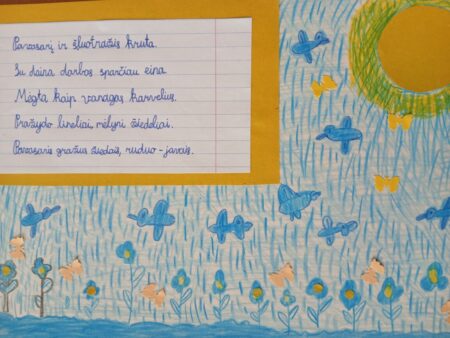 Pavasarį ir šluotražis kruta.
Su daina darbas sparčiau eina.
Mėgta kaip vanagas karvelius.
Pražydo lineliai, mėlyni žiedeliai.
Pavasaris gražus žiedais, ruduo - javais.